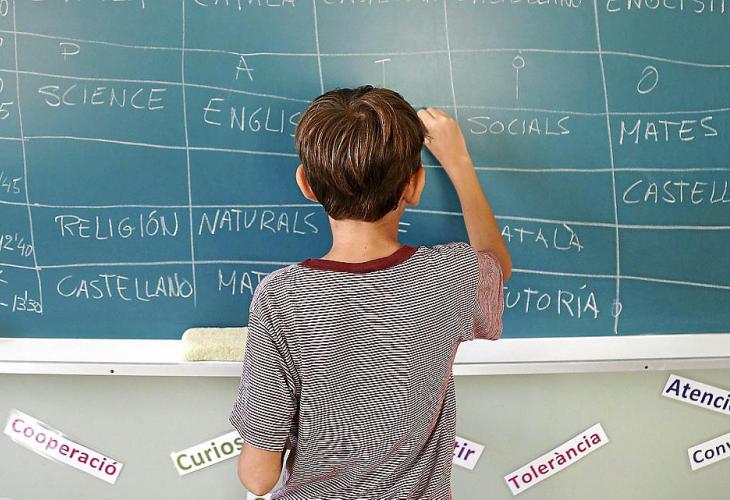 CATALÀ ENGLISH CASTELLANO ENGLISH
P A T I O
SCIENCE ENGLIS SOCIALS MATES
45 CASTELL
RELIGIÓN NATURALS CATALÀ
12'40
CASTELLANO MAT TUTORÍA
- 13'30
Cooperació
Curios
tir
Tolerància
Atenció
Conv